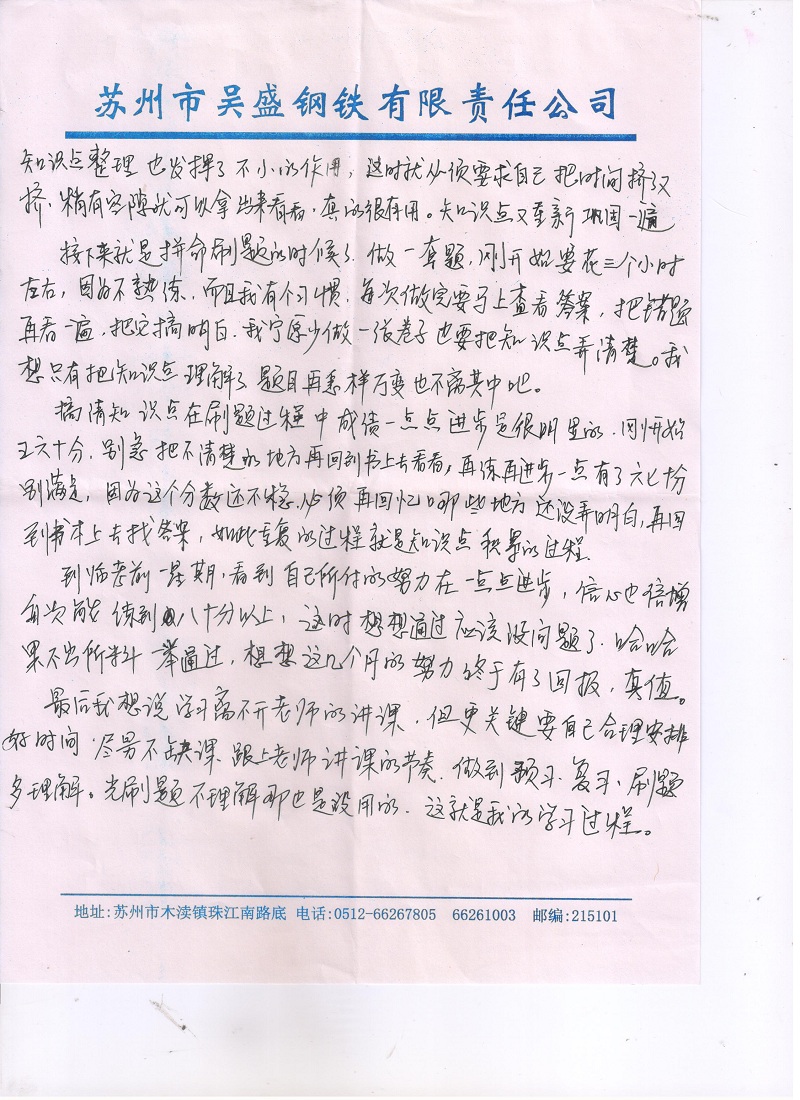 苏州市吴盛钢铁有限责任公司
知识点整理也发挥了不小的作用，这时就必须要求自己把时间挤了又
挤，稍有空隙就可以拿出来看看，真的很有用。知识点又重新巩固一遍
接下来就是拼命刷题的时候了，做一套题，刚开始要花三个小时
左右，因为不熟练，而且我有个习惯，每次做完要马上查看答案，把错题
再看一遍，把它搞明白，我宁愿少做一张卷子也要把知识点弄清楚。我
想只有把知识点理解了题目再怎样万变也不离其中吧。
搞清知识点在刷题过程中成绩一点点进步是很明显的，刚开始
五六十分，别急把不清楚的地方再回到书上去看看，再练再进步一点有了六七十分
别满足，因为这个分数还不稳，必须再回忆哪些地方还没弄明白，再回
到书本上去找答案，如此重复的过程就是知识点积累的过程
到师考前一星期，看到自己所付的努力在一点点进步，信心也倍增
每次能练到八十分以上，这时想想通过应该没问题了，哈哈
果不出所料一举通过，想想这几个月的努力终于有了回报，真值。
最后我想说学习离不开老师的讲课，但更关键要自己合理安排
好时间，尽量不缺课，跟上老师讲课的节奏，做到预习、复习、刷题
多理解。光刷题不理解那也是没用的，这就是我的学习过程。
地址:苏州市木渎镇珠江南路底 电话:0512-66267805 66261003 邮编:215101